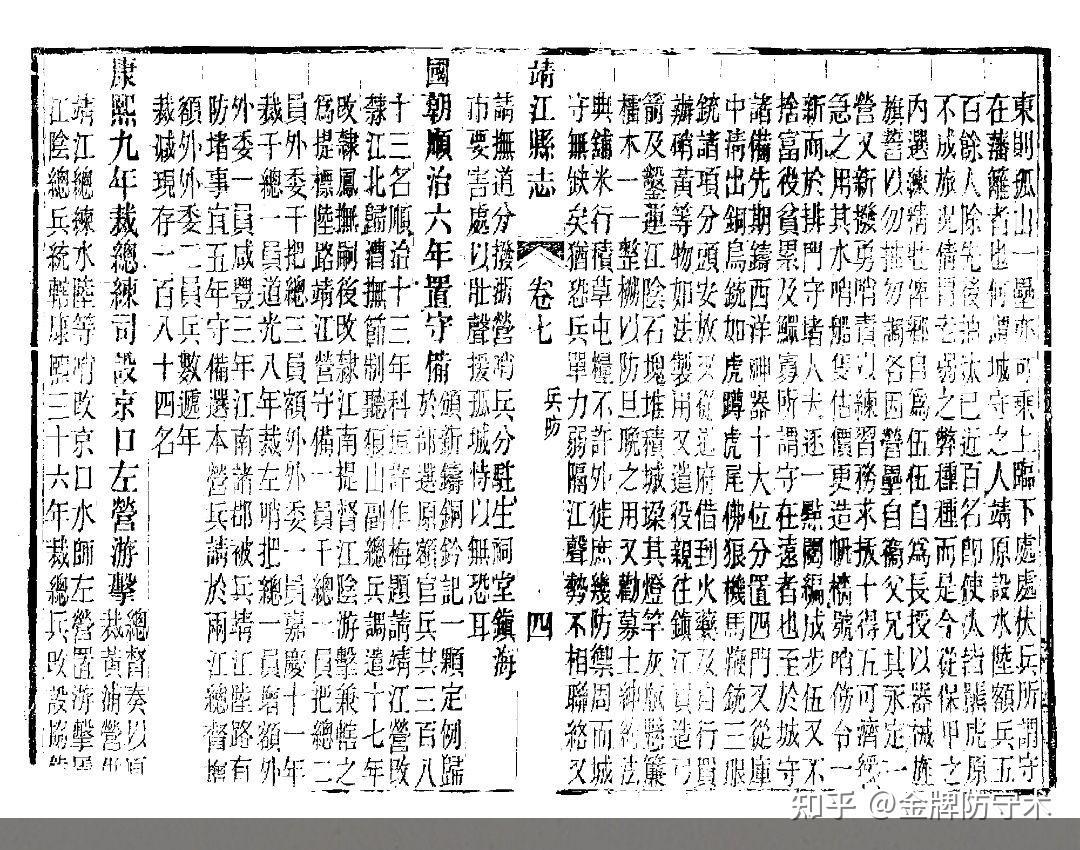 東則孤山一壘亦可乘上臨下處處伏兵所謂守
在藩籬者也何謂城守之人靖原設水陸額兵五
百餘人除先後抽汰已近百名即使汰皆羆虎原
不成旅況借冒老弱之弊種種而是今從保甲之
內選練精壯鄉自為伍伍自為長授以器械旌
旗誓以勿抽勿調各因營壘自衛父兄其永定一
營又新撥勇哨責以練習務求拔十得五可濟緩
急之用其水哨船隻估價更造帆檣號哨倣台一
新而於排門守堵人夫逐一點閱編成步伍又不
捨富役貧累及鰥寡所謂守在遠者也至於城守
諸備先期鑄西洋神器十大位分置四門又從庫
中清出銅烏銃如虎蹲虎尾佛狼機馬鞭銃三眼
銃諸項分頭安放又從道府借到火藥及自行買
辦硝黃等物如法製用又造役親往鎮江員造弓
箭及鑿運江陰石塊堆積城垛其燈竿灰瓶懸簾
檑木一一整械以防旦晚之用又勸募士紳約法
典鋪米行積草屯糧不許外徙庶幾防禦周而城
守無缺矣猶恐兵單力弱隔江聲勢不相聯絡又
靖江縣志 卷七 兵防 四
請撫道分撥浙營哨兵分駐生祠堂鎮海
市要害處以壯聲援孤城恃以無恐耳
國朝順治六年置守備 頒新鑄銅鈐記一顆定例歸
於部選原額官兵共三百八
十三名順治十三年科垣許作梅題請靖江營改
隸江北歸漕撫節制聽狼山副總兵調遣十七年
改隸鳳撫嗣後改隸江南提督江陰游擊兼轄之
為提標陸路靖江營守備一員千總一員把總二
員外委千把總三員額外外委一員嘉慶十一年
裁千總一員道光八年裁左哨把總一員增額外
外委一員咸豐三年江南諸郡被兵靖江陸路有
防堵事宜五年守備選本營兵請於兩江總督增
額外外委二員兵數遞年
裁減現存一百八十四名
康熙九年裁總練司設京口左營游擊 總督奏以
裁黃浦營
靖江總練水陸等哨改京口水師左營置游擊
江陰總兵統轄康熙三十六年裁總兵改設協
知乎 @金牌防守术